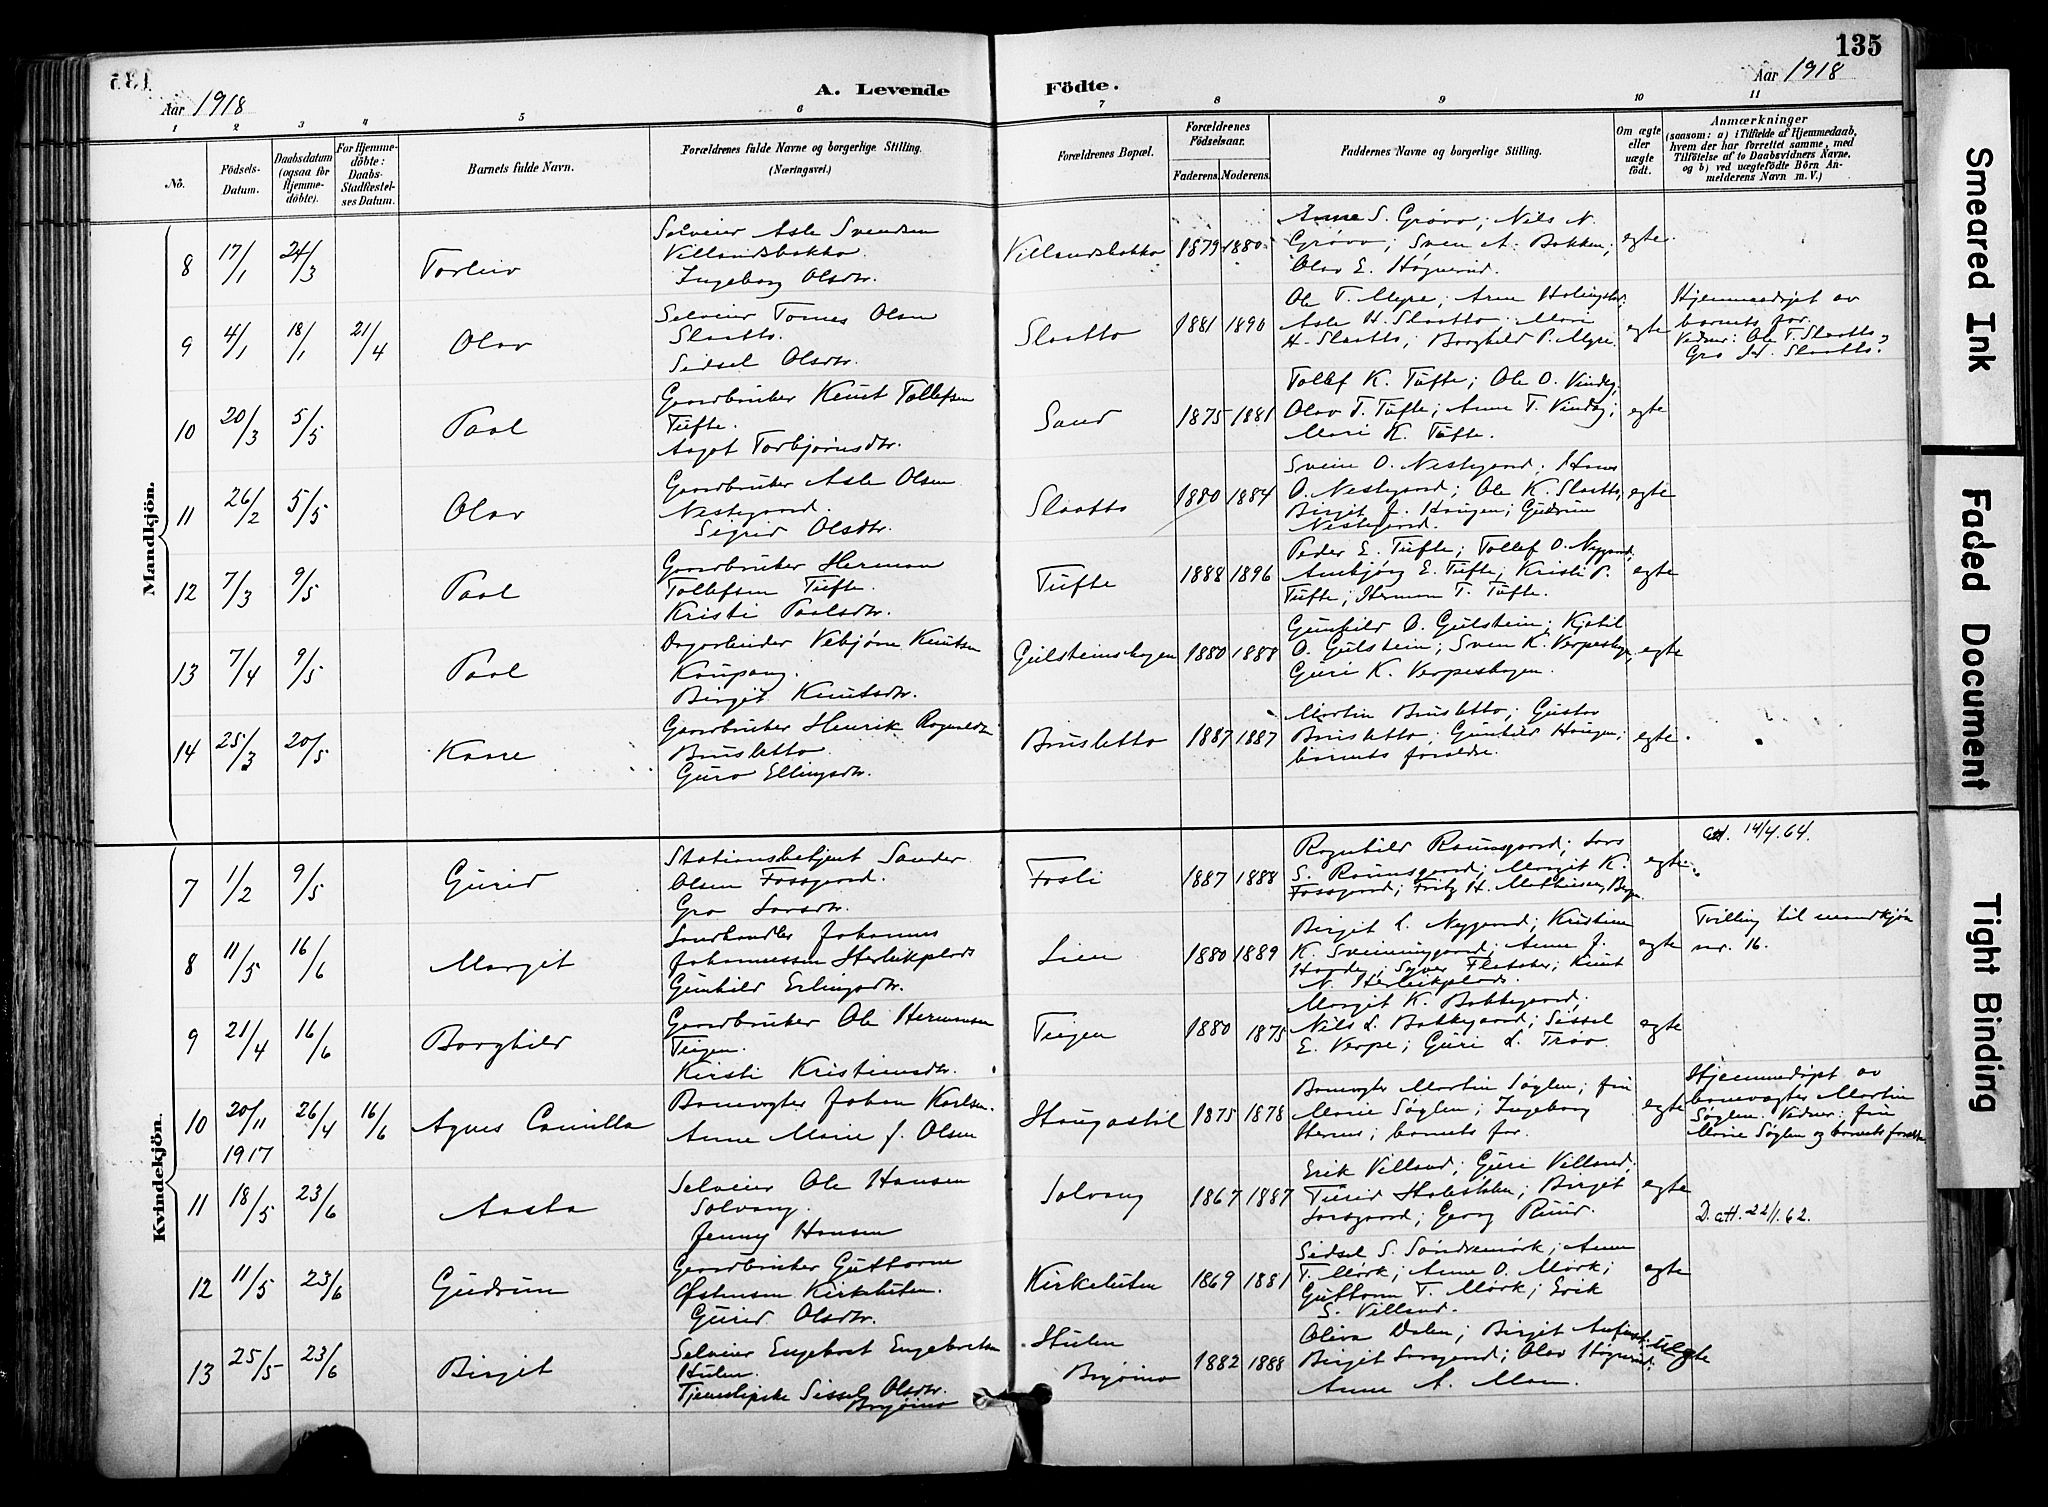 135
Aar 1918
A. Levende Födte.
Aar 1918
1 2 3 4 5 6 7 8 9 10 11
No.
Födsels-Datum.
Daabsdatum (ogsaa for Hjemme-döbte).
For Hjemme-döbte: Daabs-Stadfæstel-ses Datum.
Barnets fulde Navn.
Forældrenes fulde Navne og borgerlige Stilling.
(Næringsvei.)
Forældrenes Bopæl.
Forældrenes Födselsaar.
Faderens. Moderens.
Faddernes Navne og borgerlige Stilling.
Om ægte eller uægte födt.
Anmærkninger
(saasom: a) i Tilfælde af Hjemmedaab, hvem der har forrettet samme, med Tilföielse af to Daabsvidners Navne, og b) ved uægtefödte Börn An-melderens Navn m. V.)
Mandkjön.
8 17/1 24/3 Torleiv
Selveier Asle Svendsen
Villandsbakko
Ingeborg Olsdtr.
Villandsbakko 1879 1880
Anne S. Grøvo; Nils N.
Grøvo; Sven A. Bakken;
Olav E. Høgnerud.
egte
9 4/1 18/1 21/4 Olav
Selveier Tomes Olsen
Slaatto.
Sidsel Olsdtr.
Slaatto 1881 1890
Ole T. Myre; Arne
Asle H. Slaatto; Mari
H. Slaatto; Borghild P. Myre.
egte
Hjemmedøpt av
barnets far.
Vidner: Ole T. Slaatto
Gro Slaatto.
10 20/3 5/5 Paal
Gaardbruker Knut Tollefsen
Tufte.
Aagot Torbjørnsdtr.
Sand 1875 1881
Tollef K. Tufte; Ole O. Vindeg;
Olav T. Tufte; Anne T. Vindeg;
Mari K. Tufte.
egte
11 26/2 5/5 Olav
Gaardbruker Asle Olsen
Nestegaard.
Sigrid Olsdtr.
Slaatto 1880 1884
Svein O. Nestegaard; Hans
O. Nestegaard; Ole K. Slaatto;
Birgit J. Haugen; Gudrun
Nestegaard.
egte
12 7/3 9/5 Paal
Gaardbruker Herman
Tollefsen Tufte.
Kristi Paalsdtr.
Tufte 1888 1896
Peder E. Tufte; Tollef O. Nygaard;
Ambjørg E. Tufte; Kristi P.
Tufte; Herman T. Tufte.
egte
13 7/4 9/5 Paal
Dagarbeider Vebjørn Knutsen
Kaupang.
Birgit Knutsdtr.
Gulsteinshagen 1880 1888
Gunhild O. Gulstein; Kjetil
O. Gulstein; Sven K. Verpeshagen;
Guri K. Verpeshagen.
egte
14 25/3 20/5 Kaare
Gaardbruker Henrik Ragnvaldsen
Brusletto.
Guro Ellingsdtr.
Brusletto 1887 1887
Martin Brusletto; Gustav
Brusletto; Gunhild Haugen;
barnets foreldre.
egte
Kvindekjön.
7 1/2 9/5 Gurid
Stationsbetjent Sander
Olsen Fossgaard.
Gro Larsdtr.
Fosli 1887 1888
Ragnhild Raunsgaard; Lars
S. Raunsgaard; Margit K.
Fossgaard; Fritz H. Mathiesen, Bergen
egte
att. 14/4.64.
8 11/5 16/6 Margit
Landhandler Johannes
Johannessen Herleikplads
Gunhild Erlingsdtr.
Lien 1880 1889
Birgit L. Nygaard; Kristine
K. Sveinunggaard; Anne J.
Haarde; Syver Flataker; Knut
N. Herleikplads.
egte
Tvilling til mandkjøn
nr. 16.
9 21/4 16/6 Borghild
Gaardbruker Ole Hermansen
Teigen.
Kirsti Kristiansdtr.
Teigen 1880 1875
Margit K. Bakkegaard;
Nils L. Bakkegaard; Sissel
E. Verpe; Guri L. Trao.
egte
10 20/11 1917 26/4 16/6 Agnes Camilla
Banevogter Johan Karlsen.
Anne Marie f. Olsen
Haugastøl 1875 1878
Banevogter Martin Søglen; fru
Marie Søglen; Ingeborg
Hernes; barnets far.
egte
Hjemmedøpt av
banevogter Martin
Søglen. Vidner: fru
Marie Søglen og barnets foreldre
11 18/5 23/6 Aasta
Selveier Ole Hansen
Solvang.
Jenny Hansen
Solvang 1867 1887
Erik Villand; Guri Villand;
Turid Halstølen; Birgit
Larsgaard; Georg Ruud.
egte
D. att. 22/1.62.
12 11/5 23/6 Gudrun
Gaardbruker Guttorm
Østensen Kirkeluten.
Gurid Olsdtr.
Kirkeluten 1869 1881
Sidsel S. Søndremørk; Anne
T. Mørk; Anne O. Mørk;
Guttorm T. Mørk; Erik
S. Villand.
egte
13 25/5 23/6 Birgit
Selveier Engebret Engebretsen
Hulen.
Tjenestepike Sissel Olsdtr.
Brujøino
Hulen
Brujøino 1882 1888
Oliva Dalen; Birgit
Birgit Larsgaard; Olav Høgnerud;
Anne A. Moen.
uegte
Smeared Ink
Faded Document
Tight Binding